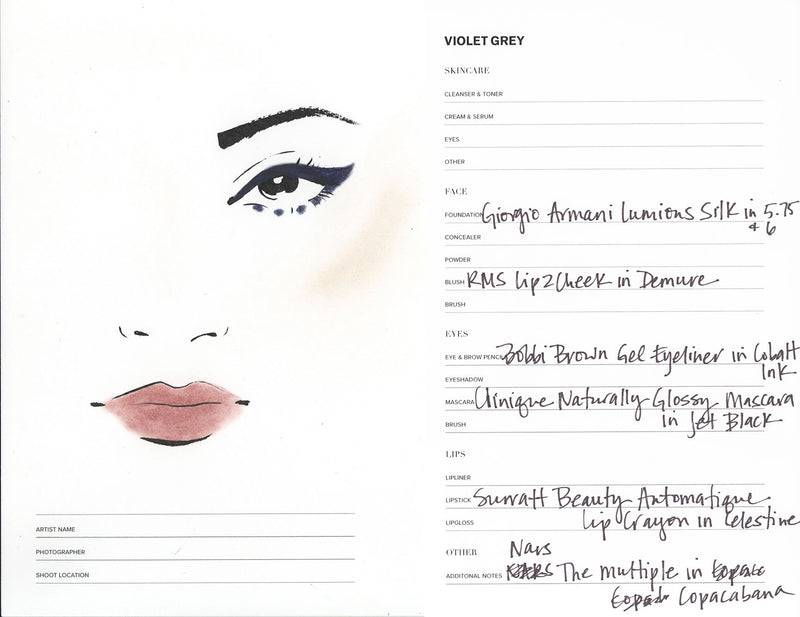 VIOLET GREY
SKINCARE
CLEANSER & TONER
CREAM & SERUM
EYES
OTHER
FACE
FOUNDATION Giorgio Armani Lumious Silk in 5.75
& 6
CONCEALER
POWDER
BLUSH RMS Lip2Cheek in Demure
BRUSH
EYES
EYE & BROW PENCIL Bobbi Brown Gel Eyeliner in Cobalt
Ink
EYESHADOW
MASCARA Clinique Naturally Glossy Mascara
in Jet Black
BRUSH
LIPS
LIPLINER
LIPSTICK Surratt Beauty Automatique
LIPGLOSS Lip Crayon in Celestine
OTHER Nars
ADDITONAL NOTES The multiple in
Copacabana
ARTIST NAME
PHOTOGRAPHER
SHOOT LOCATION